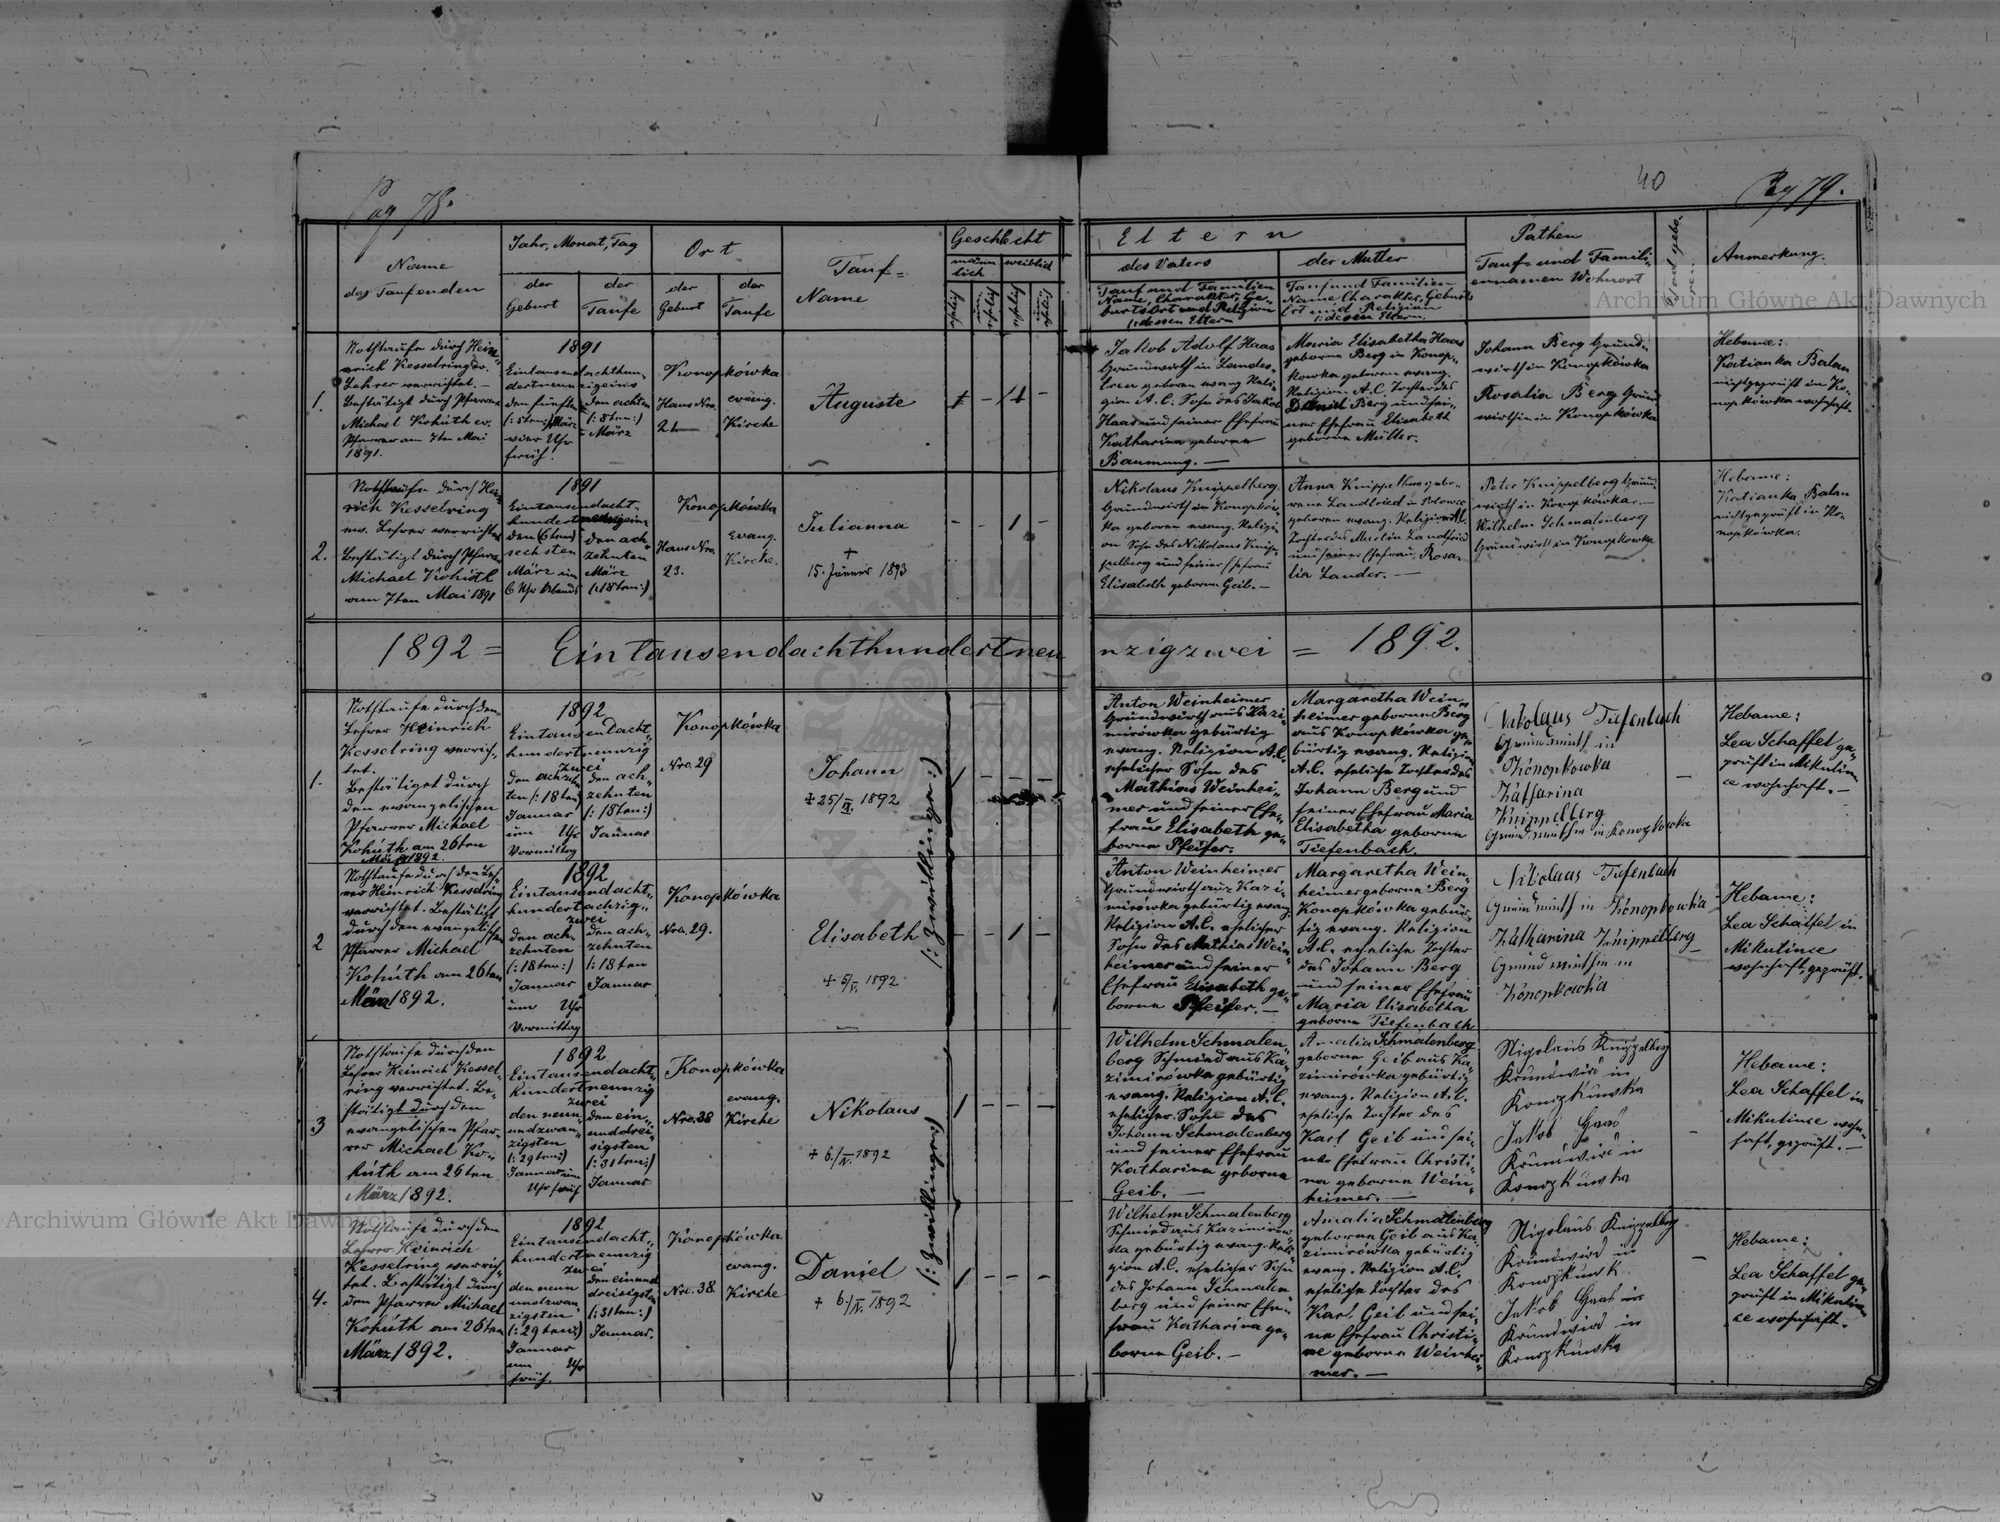 Pag 78.
40
Pag 79.
Name
des Taufenden
Jahr, Monat, Tag
der
Geburt
der
Taufe
Ort
der
Geburt
der
Taufe
Tauf=
Name
Geschlecht
männ
lich
weiblich
ehlich
un-
ehlich
ehlich
un-
ehlich
Eltern
des Vaters
Tauf und Familien
Name, Charakter, Ge-
burtsOrt und Religion
dessen Eltern
der Mutter
Tauf und Familien
Name Charakter, Geburts
Ort und Religion
dessen Eltern.
Pathen
Tauf- und Famili-
ennamen Wohnort
Todgebo-
ren
Anmerkung.
Archiwum Główne Akt Dawnych
1.
Nothtaufe durch Hein-
rich Kesselring ev.
Lehrer verrichtet. -
Bestätigt durch Pfarrer
Michael Kohúth ev.
Pfarrer am 7ten Mai
1891.
1891
Eintausendachthun-
dertneunzigeins
den fünften
(: 5ten:) März
vier Uhr
früh.
den achten
(: 8ten:)
März
Konopkówka
Haus Nro.
21
evang.
Kirche
Auguste
1 - 1 -
Jakob Adolf Haas
Grundwirth in Landes-
treu geboren evang. Reli-
gion A. C. Sohn des Jakob
Haas und seiner Ehefrau
Katharina geborene
Baumung. -
Maria Elisabetha Haas
geborne Berg in Konop-
kowka geboren evang.
Religion A. C. Tochter des
Berg und sei-
ner Ehefrau Elisabeth
geborne Müller.
Johann Berg Grund-
wirth in Konopkówka
Rosalia Berg Grund
wirthin in Konopkówka
Hebame:
Katianka Balan
nichtgeprüft in Ko-
nopkówka wohnhaft.
2.
Nothtaufe durch Hein
rich Kesselring
ev. Lehrer verrichtet
Bestätigt durch Pfarrer
Michael Kohúth
am 7ten Mai 1891
1891
Eintausendacht-
hundertneunzigeins
den (6ten)
sechsten
März um
6 Uhr Abends
den ach-
zehnten
März
(: 18ten:)
Konopkówka
Haus Nro.
23.
Evang.
Kirche.
Julianna
+
15. Jänner 1893
- - 1 -
Nikolaus Knippelberg
Grundwirth in Konopków-
ka geboren evang. Religi-
on Sohn des Nikolaus Knip-
pelberg und seiner Ehefrau
Elisabeth geborne Geib. -
Anna Knippelberg gebo-
rene Landfried in
geboren evang. Religion A.C.
Tochter des Martin Landfried
und seiner Ehefrau, Rosa-
lia Lander. -
Peter Knippelberg Grund
wirth in Konopkówka. -
Wilhelm Schmalenberg
Grundwirth in Konopkówka
Hebame:
Katianka Balan
nichtgeprüft in Ko-
nopkówka.
1892 = Eintausendachthundertneu
nzigzwei = 1892.
1.
Nothtaufe durch den
Lehrer Heinrich
Kesselring verrich-
tet.
Bestätiget durch
den evangelischen
Pfarrer Michael
Kohúth am 26ten
März 1892.
1892
Eintausendacht-
hundertneunzig
zwei
den achtzehn
ten (: 18ten:)
Jannar
um Uhr
Vormittag
den ach-
zehnten
(: 18ten:)
Jannar
Konopkówka
Nro. 29
Johann
+ 25/IX. 1892
(: Zwillinge :)
1 - - -
Anton Weinheimer
Grundwirth aus Kazi-
mirówka gebürtig
evang. Religion A. C.
ehelicher Sohn des
Mathias Weinhei-
mer und seiner Ehe-
frau Elisabeth ge-
borne Pfeifer.
Margaretha Wein-
heimer geborne Berg
aus Konopkówka ge-
bürtig evang. Religion
A.C. eheliche Tochter des
Johann Berg und
seiner Ehefrau Maria
Elisabetha geborne
Tiefenbach.
Nikolaus Tiefenbach
Grundwirth in
Konopkowka
Katharina
Knippelberg
Grundwirthin in Konopkówka
-
Hebame:
Lea Schaffel ge-
prüft in Mikulin-
ce wohnhaft. -
2
Nothtaufe durch den Leh-
rer Heinrich Kesselring
verrichtet. Bestätigt
durch den evangelischen
Pfarrer Michael
Kohúth am 26ten
März 1892.
1892
Eintausendacht-
hundertachzig-
zwei
den ach-
zehnten
(: 18ten:)
Jannar
um Uhr
Vormittag
den ach-
zehnten
(: 18ten
Jannar
Konopkówka
Nro. 29.
Elisabeth
+ 5/V. 1892
- - 1 -
Anton Weinheimer
Grundwirth aus Kazi-
mirówka gebürtig evang.
Religion A.C. ehelicher
Sohn des Mathias Wein-
heimer und seiner
Ehefrau Elisabeth ge-
borne Pfeifer. -
Margaretha Wein-
heimer geborne Berg
Konopkówka gebür-
tig evang. Religion
A.C. eheliche Tochter
des Johann Berg
und seiner Ehefrau
Maria Elisabetha
geborne Tiefenbach
Nikolaus Tiefenbach
Grundwirth in Konopkowka
Katharina Knippelberg
Grundwirthin in
Konopkowka
-
Hebame:
Lea Schaffel in
Mikulince
wohnhaft, geprüft.
3
Nothtaufe durch den
Lehrer Heinrich Kessel-
ring verrichtet. Be-
stätigt durch den
evangelischen Pfar-
rer Michael Ko-
húth am 26ten
März 1892.
1892
Eintausendacht-
hundertneunzig
zwei
den neun-
undzwan-
zigsten
(: 29ten:)
Jannar um
Uhr früh
den ein-
unddrei-
sigsten
(: 31ten:)
Jannar
Konopkówka
Nro. 38
evang.
Kirche
Nikolaus
+ 6./IV. 1892
(: Zwillinge :)
1 - - -
Wilhelm Schmalen-
berg Schmied aus Ka-
zimirówka gebürtig
evang. Religion A.C.
ehelicher Sohn des
Johann Schmalenberg
und seiner Ehefrau
Katharina geborne
Geib. -
Amalia Schmalenberg
geborne Geib aus Ka-
zimirówka gebürtig
evang. Religion A.C.
eheliche Tochter des
Karl Geib und sei-
ner Ehefrau Christi-
na geborne Wein-
heimer. -
Nigolaus Knippelberg
Krundwird in
Konopkuwka
Jakob Haas
Krundwird in
Konopkuwka
-
Hebame:
Lea Schaffel in
Mikulince wohn-
haft, geprüft. -
Archiwum Główne Akt Dawnych
4.
Nothtaufe durch den
Lehrer Heinrich
Kesselring verrich-
tet. Bestätigt durch
den Pfarrer Michael
Kohúth am 26ten
März 1892.
1892
Eintausendacht-
hundertneunzig
zwei
den neun
undzwan-
zigsten
(: 29ten:)
Jannar
um Uhr
früh.
den einund
dreisigsten
(: 31ten:)
Jannar.
Konopkówka
Nro. 38.
evang.
Kirche
Daniel
+ 6./IV. 1892
1 - - -
Wilhelm Schmalenberg
Schmied aus Kazimirów-
ka gebürtig evang. Reli-
gion A.C. ehelicher Sohn
des Johann Schmalen-
berg und seiner Ehe-
frau Katharina ge-
borne Geib. -
Amalia Schmalenberg
geborne Geib aus Ka-
zimirówka gebürtig
evang. Religion A.C.
eheliche Tochter des
Karl Geib und sei-
ne Ehefrau Christi-
ne geborne Weinhei-
mer. -
Nigolaus Knippelberg
Krundwird in
Konopkuwk
Jakob Haas in
Krundwird in
Konopkuwka
-
Hebame:
Lea Schaffel ge-
prüft in Mikulin-
ce wohnhaft.